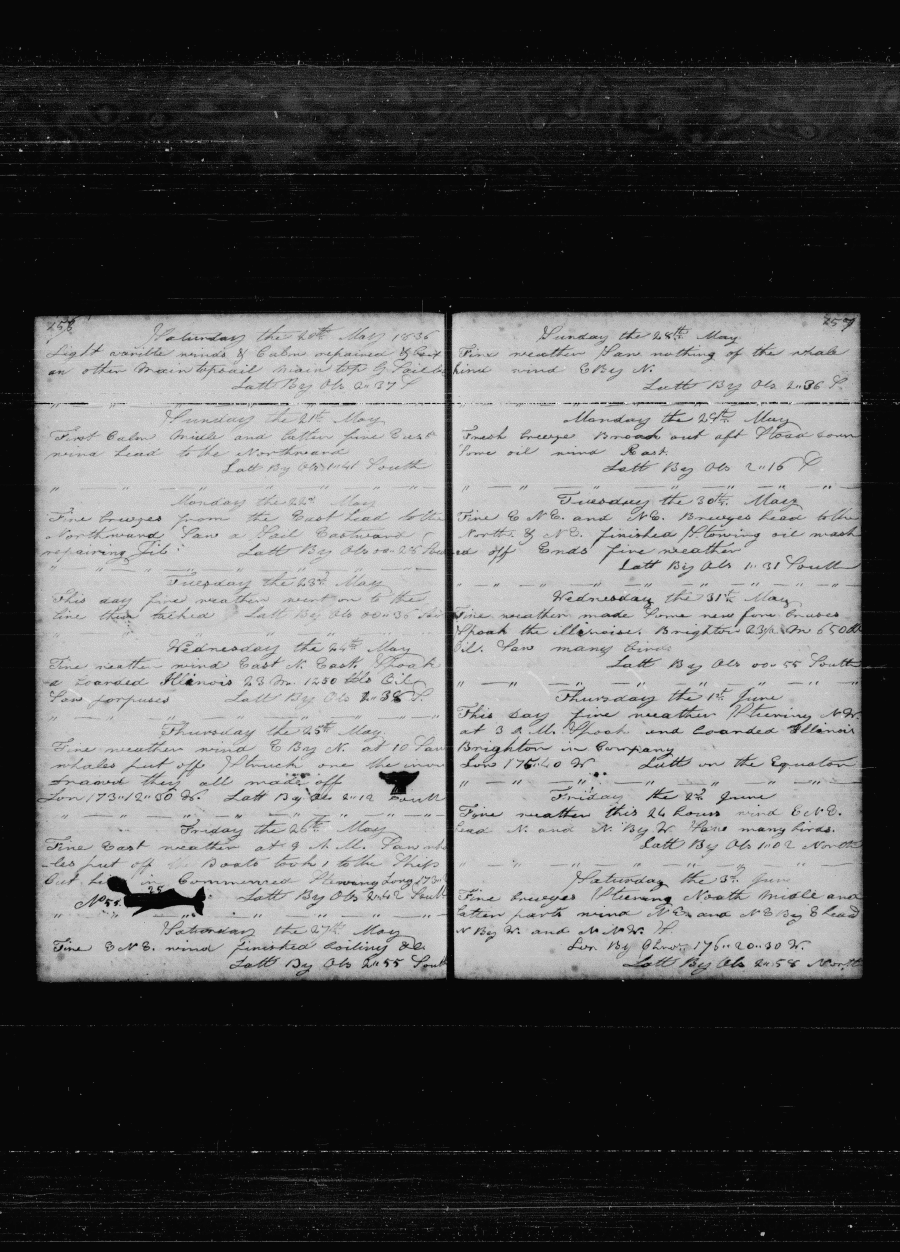 256
Saturday the 20th May 1836
Light varible winds & Calm repaired & bent
an other main topsail main top G Sail &c
Latt By Obs 2"37 S
Sunday the 21th May
First Calm midle and latter fine East
wind head to the Northward
Latt By Obs 1"41 South
Monday the 22d May
Fine breezes from the East head to the
Northward Saw a Sail Eastward
repairing Jib Latt By Obs 00"28
Tuesday the 23d May
This day fine weather went on to the
line then tacked Latt By Obs 00"36
Wednesday the 24th May
Fine weather wind East N. East. Spoak
a boarded Illinois 23 M. 1250 bbls Oil
Saw porpuses Latt By Obs 1"38 S
Thursday the 25th May
Fine weather wind E By N. at 10 Saw
whales put off Struck one the iron
drawed they all made off
Lon 173"12"50 W. Latt By Obs 2"12 South
Friday the 26th May
Fine East weather at 9 A.M. Saw wha
-les put off Boats took 1 to the Ship
Cut him in Commenced Stowing Long 173
No 51. 25 Latt By Obs 2"42 South
Saturday the 27th May
Fine E N E. wind finished boiling &c.
Latt By Obs 2"55 South
257
Sunday the 28th May
Fine weather Saw nothing of the whale
kind wind E By N.
Latt By Obs 2"36 S.
Monday the 29th May
Fresh breeze Broak out aft Stoad down
Some oil wind East.
Latt By Obs 2"16 S
Tuesday the 30th May
Fine E N E. and N E. Breezes head to the
North. & N E. finished Stowing oil wash
ed off Ends fine weather
Latt By Obs 1"31 South
Wednesday the 31th May
Fine weather made Some new fore braces
Spoak the Illenoise. Brighton 23½ M 650 bbls
Oil. Saw many birds
Latt By Obs 00"55 South
Thursday the 1th June
This day fine weather Steering N.W.
at 3 P.M. Spoak and boarded Illinois
Brighton in Company
Lon 175"40 W. Latt on the Equator
Friday the 2d June
Fine weather this 24 hours wind E N E.
head N. and N. By W. Saw many birds.
Latt By Obs 1"02 North
Saturday the 3d Jun
Fine breezes Steering North midle and
latter parts wind N E. and N E By E head
N By W. and N.N.W.
Lon By Chro 176"20"30 W.
Latt By Obs 2"58 North